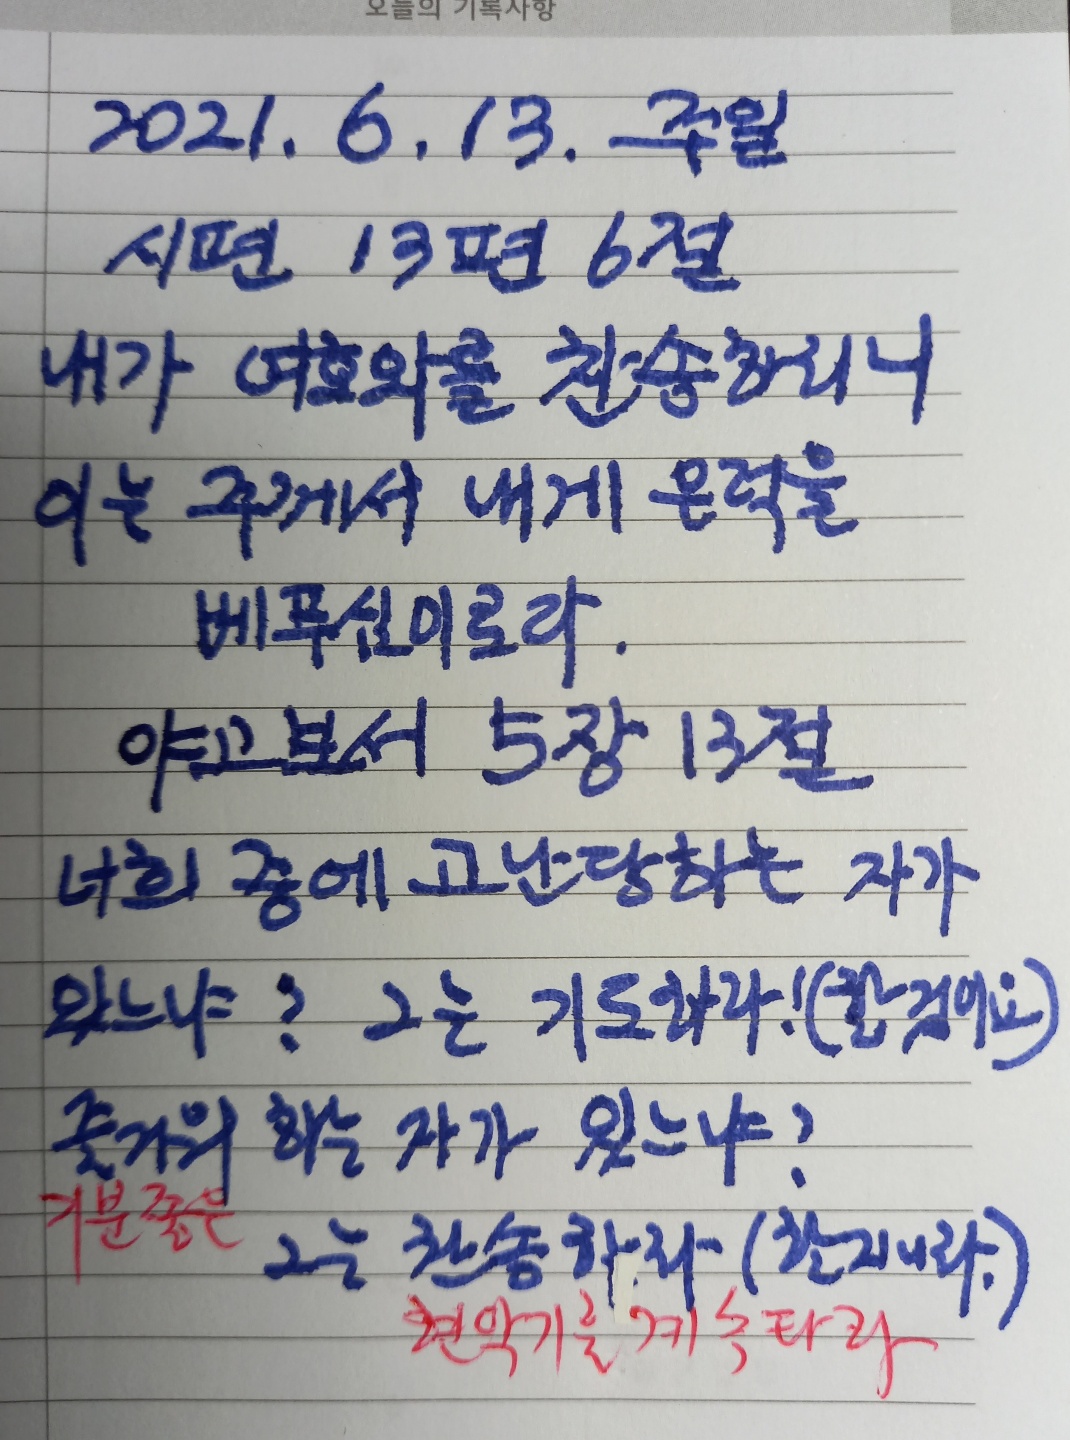 오늘의 기록사항
2021. 6. 13. 주일
시편 13편 6절
내가 여호와를 찬송하리니
이는 주께서 내게 은덕을
베푸심이로다.
야고보서 5장 13절
너희 중에 고난당하는 자가
있느냐? 그는 기도하라! (할것이요)
즐거워 하는 자가 있느냐?
기분좋은
그는 찬송하라 (할지니라.)
현악기를 계속타라